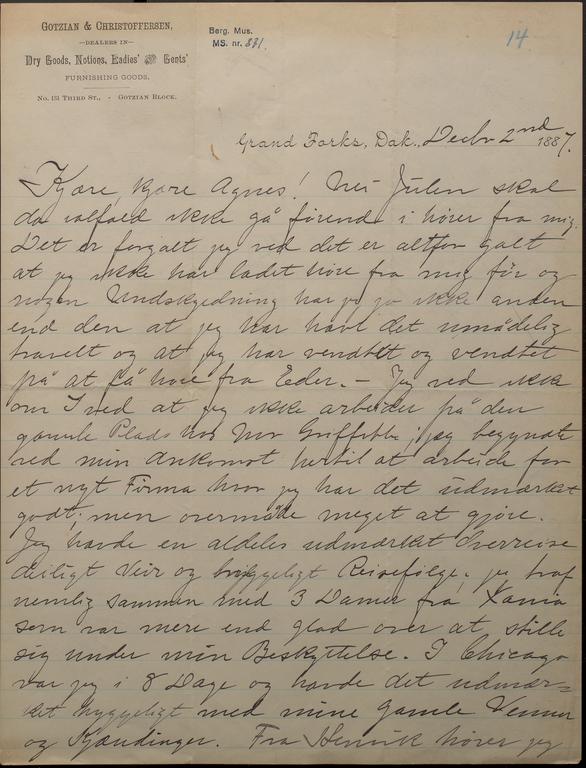 GOTZIAN & CHRISTOFFERSEN,
—DEALERS IN—
Dry Goods, Notions, Ladies' and Gents'
FURNISHING GOODS,
No. 131 THIRD ST., - GOTZIAN BLOCK.
Berg. Mus.
MS. nr. 831.
14
Grand Forks, Dak., Decbr 2nd 1887.
Kjære, kjære Agnes! Nei Julen skal
da ialfald ikke gå førend i hører fra mig.
Det er forgalt jeg ved det er altfor galt
at jeg ikke har ladet høre fra mig før og
nogen Undskyldning har jeg jo ikke anden
end den at jeg har havt det umådelig
travelt og at jeg har vendtet og vendtet
på at få høre fra Eder. – Jeg ved ikke
om I ved at jeg ikke arbeider på den
gamle Plads hos Mr Griffiths; jeg begyndte
ved min Ankomst hertil at arbeide for
et nyt Firma hvor jeg har det udmærket
godt; men overmåde meget at gjøre.
Jeg havde en aldeles udmærket Overreise
deiligt Veir og hyggeligt Reisefølge; jeg traf
nemlig sammen med 3 Damer fra Xania
som var mere end glad over at stille
sig under min Beskyttelse. I Chicago
var jeg i 8 Dage og havde det udmær=
ket hyggeligt med mine gamle Venner
og Kjændinger. Fra Henrik hører jeg